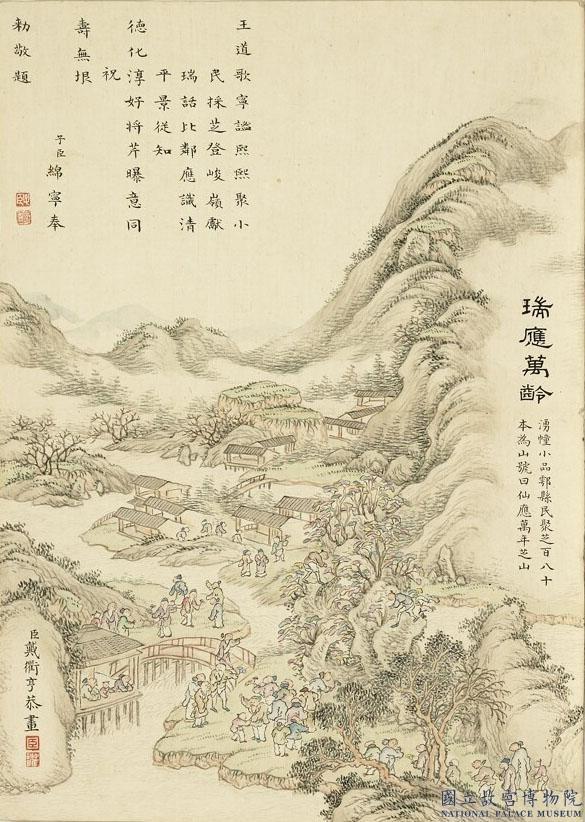 王道歌寧謐熙熙聚小
民採芝登峻嶺獻
瑞話比鄰應識清
平景從知
德化淳好將芹曝意同
祝
壽無垠
子臣綿寧奉
勅敬題
瑞應萬齡
湧幢小品鄠縣民聚芝百八十
本為山號曰仙應萬年芝山
臣戴衢亨恭畫
國立故宮博物院
NATIONAL PALACE MUSEUM